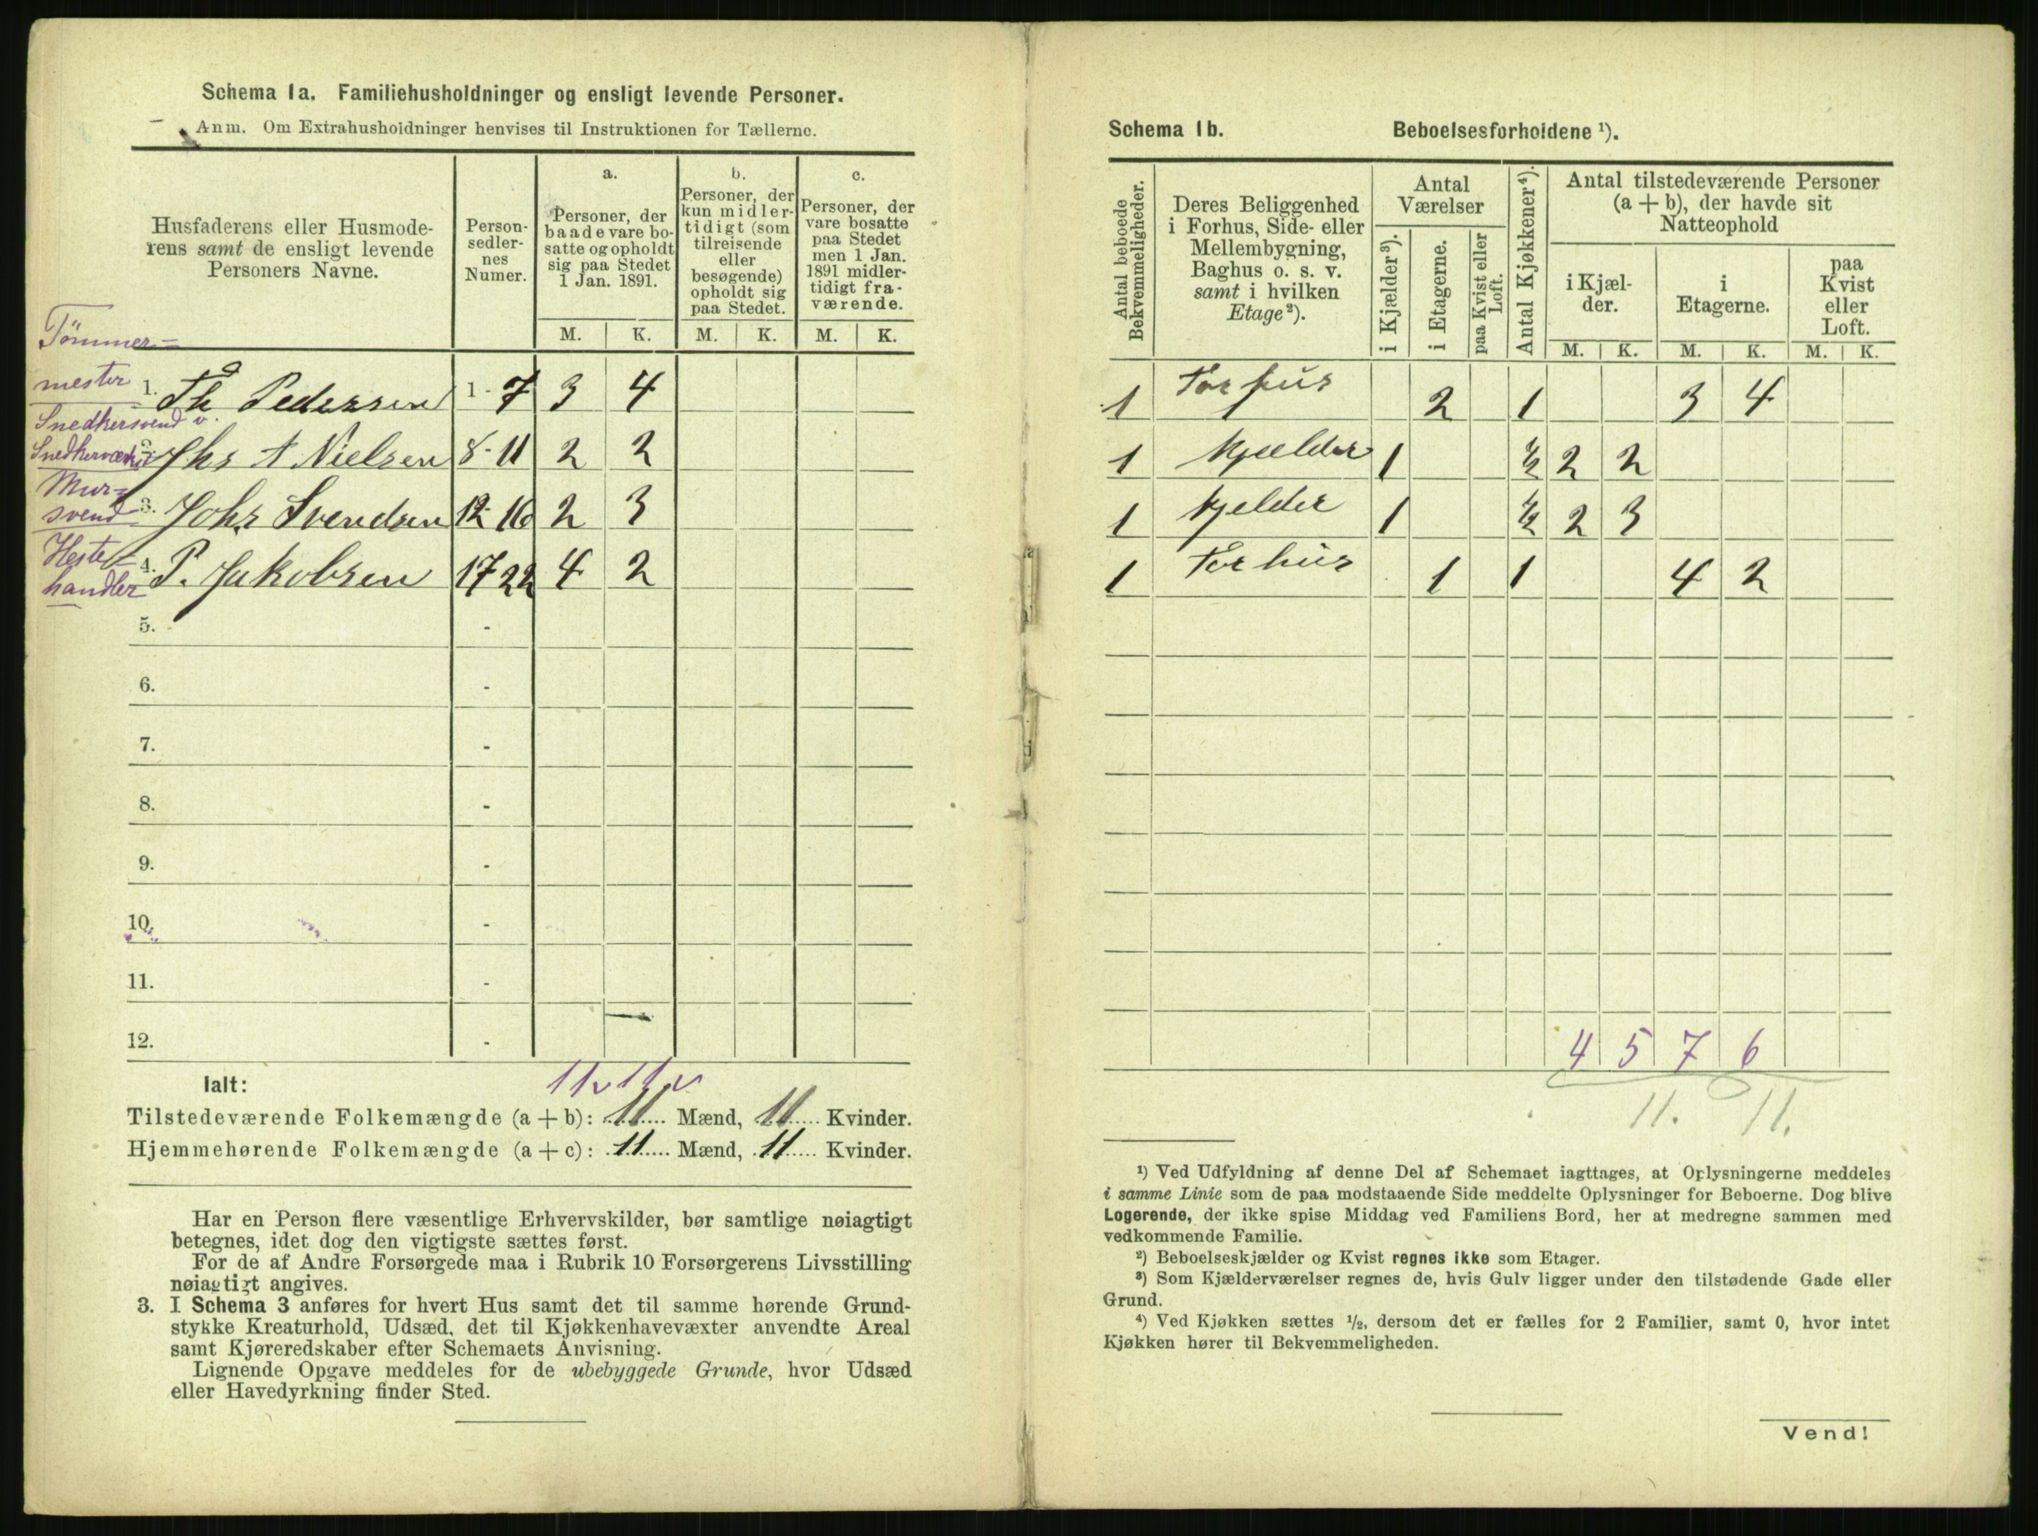 Schema 1a. Familiehusholdninger og ensligt levende Personer.
Anm. Om Extrahusholdninger henvises til Instruktionen for Tællerne.
Husfaderens eller Husmoderens samt de ensligt levende Personers Navne.
Personsedlernes Numer.
a. Personer, der baade vare bosatte og opholdt sig paa Stedet 1 Jan. 1891.
b. Personer, der kun midlertidigt (som tilreisende eller besøgende) opholdt sig paa Stedet.
c. Personer, der vare bosatte paa Stedet men 1 Jan. 1891 midlertidigt fraværende.
M. K. M. K. M. K.
Tømmermester 1. Th Pedersen 1-7 3 4
Snedkersvend v.
2. Jhs A Nielsen 8-11 2 2
Mursvend 3. Johs Svendsen 12-16 2 3
Hestehandler 4. P. Jakobsen 17 22 4 2
5. -
6. -
7. -
8. -
9. -
10. -
11. -
12. -
11 v 11 v
Ialt:
Tilstedeværende Folkemængde (a + b): 11 Mænd, 11 Kvinder.
Hjemmehørende Folkemængde (a + c): 11 Mænd, 11 Kvinder.
Har en Person flere væsentlige Erhvervskilder, bør samtlige nøiagtigt
betegnes, idet dog den vigtigste sættes først.
For de af Andre Forsørgede maa i Rubrik 10 Forsørgerens Livsstilling
nøiagtigt angives.
3. I Schema 3 anføres for hvert Hus samt det til samme hørende Grund-
stykke Kreaturhold, Udsæd, det til Kjøkkenhavevæxter anvendte Areal
samt Kjøreredskaber efter Schemaets Anvisning.
Lignende Opgave meddeles for de ubebyggede Grunde, hvor Udsæd
eller Havedyrkning finder Sted.
Schema 1b. Beboelsesforholdene ¹).
Antal beboede Bekvemmeligheder.
Deres Beliggenhed i Forhus, Side- eller Mellembygning, Baghus o. s. v. samt i hvilken Etage²).
Antal Værelser
i Kjælder³).
i Etagerne.
paa Kvist eller Loft.
Antal Kjøkkener⁴).
Antal tilstedeværende Personer (a + b), der havde sit Natteophold
i Kjælder.
i Etagerne.
paa Kvist eller Loft.
M. K. M. K. M. K.
1 Forhus 2 1 3 4
1 Kjælder 1 ½ 2 2
1 Kjelder 1 ½ 2 3
1 Forhus 1 1 4 2
4 5 7 6
11. 11.
¹) Ved Udfyldning af denne Del af Schemaet iagttages, at Oplysningerne meddeles
i samme Linie som de paa modstaaende Side meddelte Oplysninger for Beboerne. Dog blive
Logerende, der ikke spise Middag ved Familiens Bord, her at medregne sammen med
vedkommende Familie.
²) Beboelseskjælder og Kvist regnes ikke som Etager.
³) Som Kjælderværelser regnes de, hvis Gulv ligger under den tilstødende Gade eller
Grund.
⁴) Ved Kjøkken sættes ½, dersom det er fælles for 2 Familier, samt 0, hvor intet
Kjøkken hører til Bekvemmeligheden.
Vend!